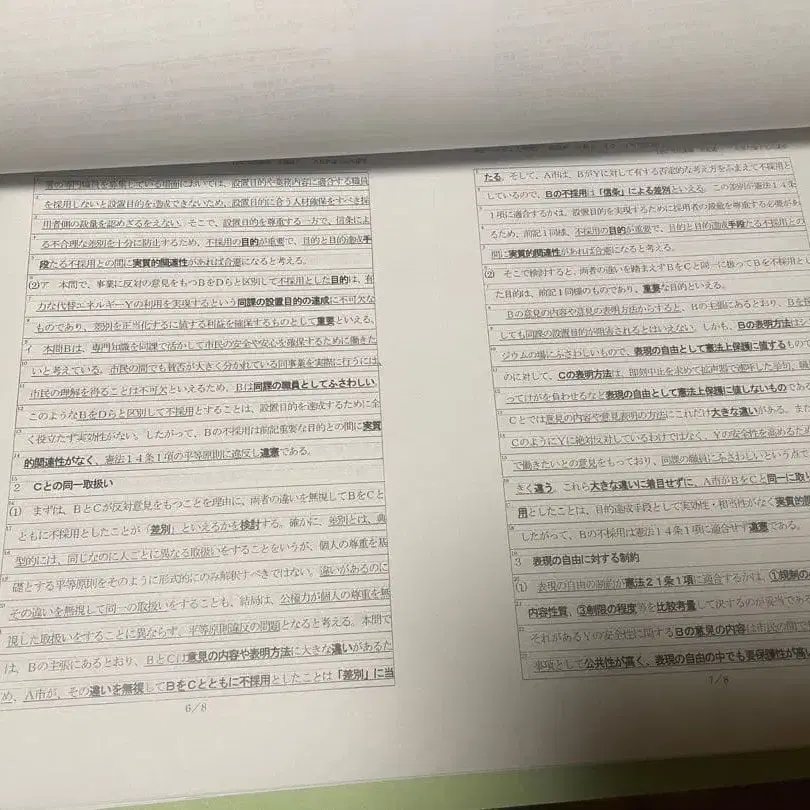 置の専門職員を募集している場面においては、設置目的や業務内容に適合する職員
を採用しないと設置目的を達成できないため、設置目的に合う人材確保をすべき採
用者側の裁量を認めざるをえない。そこで、設置目的を尊重する一方で、信条によ
る不合理な差別を十分に防止するため、不採用の目的が重要で、目的と目的達成手
段たる不採用との間に実質的関連性があれば合憲になると考える。
(2)ア 本問で、事業に反対の意見をもつBをDらと区別して不採用とした目的は、有
力な代替エネルギーYの利用を実現するという同課の設置目的の達成に不可欠な
ものであり、差別を正当化するに値する利益を確保するものとして重要といえる。
イ 本問Bは、専門知識を同課で活かして市民の安全や安心を確保するために働きた
いと考えている。市民の間でも賛否が大きく分かれている同事業を実際に行うには、
市民の理解を得ることは不可欠といえるため、Bは同課の職員としてふさわしい。
このようなBをDらと区別して不採用とすることは、設置目的を達成するために全
く役立たず実効性がない。したがって、Bの不採用は前記重要な目的との間に実質
的関連性がなく、憲法14条1項の平等原則に違反し違憲である。
2 Cとの同一取扱い
(1) まずは、BとCが反対意見をもつことを理由に、両者の違いを無視してBをCと
ともに不採用としたことが「差別」といえるかを検討する。確かに、差別とは、典
型的には、同じなのに人ごとに異なる取扱いをすることをいうが、個人の尊重を基
礎とする平等原則をそのように形式的にのみ解釈すべきではない。違いがあるのに
その違いを無視して同一の取扱いをすることも、結局は、公権力が個人の尊重を無
視した取扱いをすることに異ならず、平等原則違反の問題となると考える。本問で
は、Bの主張にあるとおり、BとCは意見の内容や表明方法に大きな違いがあるた
め、A市が、その違いを無視してBをCとともに不採用としたことは「差別」に当
6/8
たる。そして、A市は、BがYに対して有する否定的な考え方をふまえて不採用と
しているので、Bの不採用は「信条」による差別といえる。この差別が憲法14条
1項に適合するかは、設置目的を実現するために採用者の裁量を尊重する必要があ
るため、前記1同様、不採用の目的が重要で、目的と目的達成手段たる不採用との
間に実質的関連性があれば合憲になると考える。
(2) そこで検討すると、両者の違いを踏まえずBをCと同一に扱ってBを不採用とし
た目的は、前記1同様のものであり、重要な目的といえる。
Bの意見の内容や意見の表明方法からすると、Bの主張にあるとおり、Bを採
しても同課の設置目的が阻害されるとはいえない。しかも、Bの表明方法はシ
ジウムの場にふさわしいもので、表現の自由として憲法上保護に値するもので
のに対して、Cの表明方法は、即刻中止を求めて拡声器で連呼した挙句、職
ってけがを負わせるなど表現の自由として憲法上保護に値しないものであ
Cとでは意見の内容や意見表明の方法にこれだけ大きな違いがある。また
CのようにYに絶対反対しているわけではなく、Yの安全性を高めるため
で働きたいとの意見をもっており、同課の職員にふさわしいという点で
きく違う。これら大きな違いに着目せずに、A市がBをCと同一に取り
用としたことは、目的達成手段として実効性・相当性がなく実質的関
したがって、Bの不採用は憲法14条1項に適合せず違憲である。
3 表現の自由に対する制約
(1) 表現の自由の制約が憲法21条1項に適合するかは、①規制の
内容性質、③制限の程度等を比較考量して決するのが妥当であ
それがあるYの安全性に関するBの意見の内容は市民の間で
事項として公共性が高く、表現の自由の中でも要保護性が高い
7/8